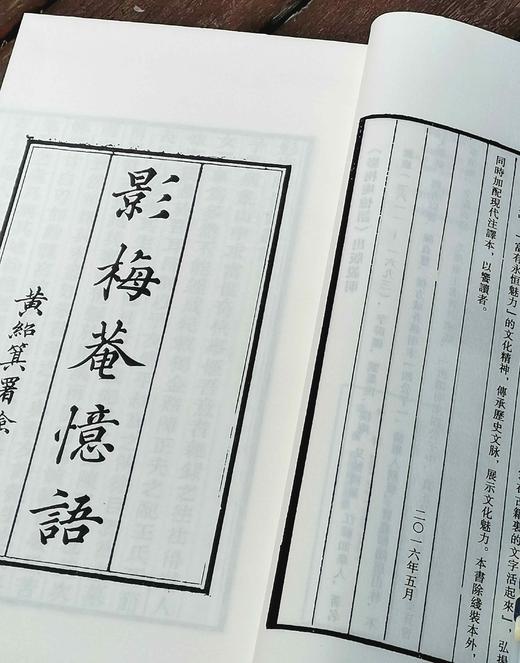 在古籍裏的文字活起來」，弘揚
富有永恒魅力」的文化精神，傳承歷史文脉，展示文化魅力。本書除綫裝本外，
同時加配現代注譯本，以饗讀者。
二〇一六年五月
影梅菴憶語
黃紹箕署檢